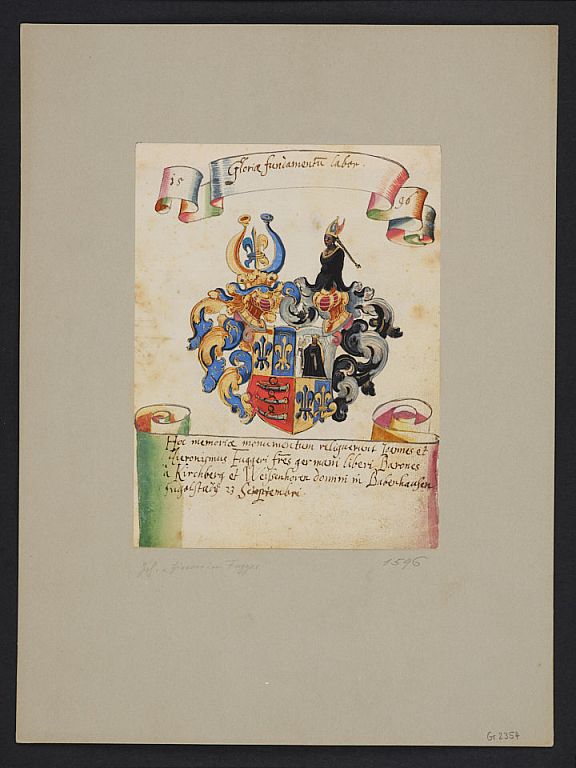 15
Gloriæ fundamentũ labor.
96
Hoc memoriæ monumentum reliquerunt Joannes et
Hieronimus Fuggeri frẽs germani liberi Barones
à Kirchberg et Weisenhoren domini in Babenhausen
Ingolstadij 23 Septembris
Fugger
1596
Gr. 2354